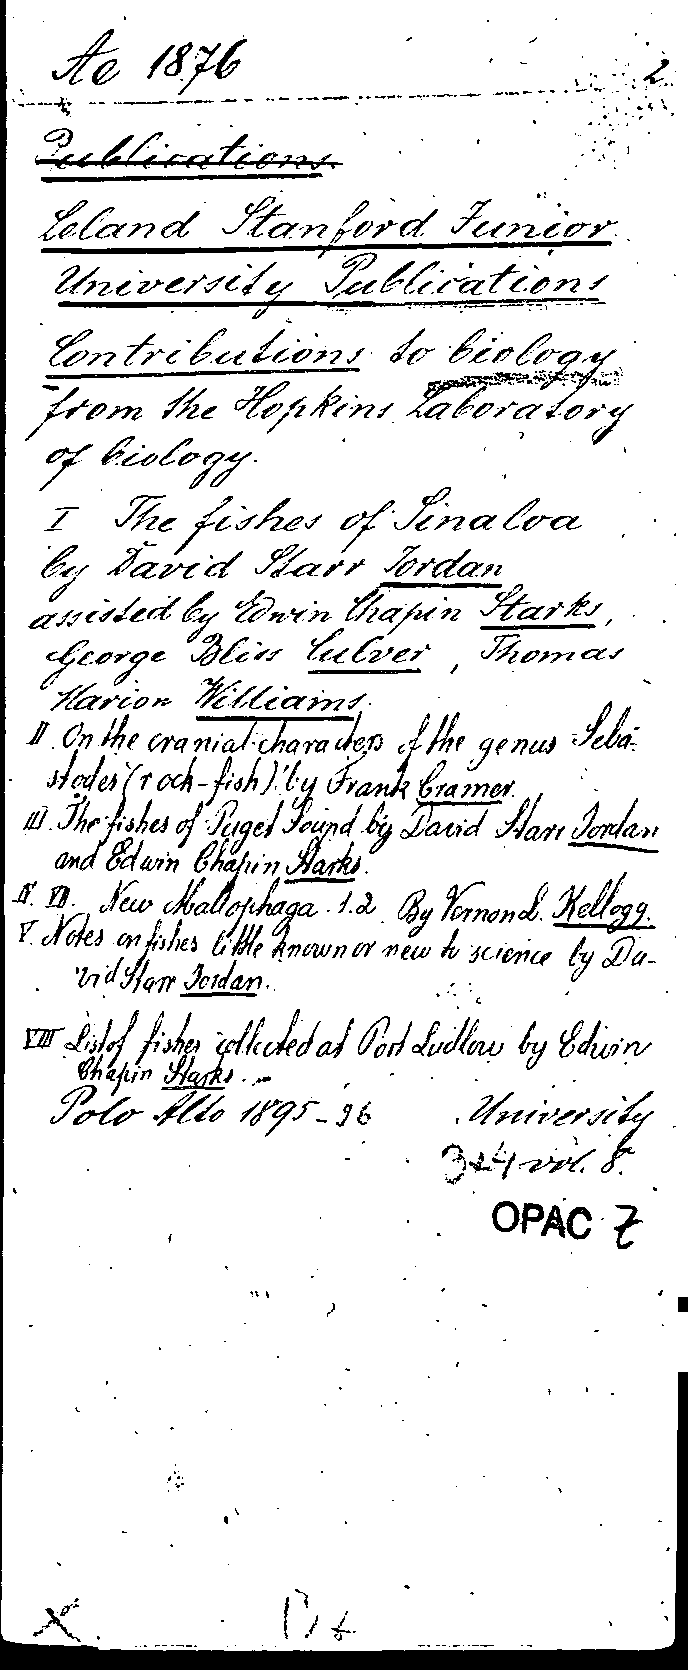 Ae 1876
2
Publications.
Leland Stanford Junior
University Publications
Contributions to biology
from the Hopkins Laboratory
of biology.
I The fishes of Sinaloa
by David Starr Jordan
assisted by Edwin Chapin Starks,
George Bliss Culver, Thomas
Marion Williams.
II. On the cranial characters of the genus Seba-
stodes (rock-fish) by Frank Cramer.
III. The fishes of Puget Sound by David Starr Jordan
and Edwin Chapin Starks.
IV. VII. New Mallophaga. 1.2 By Vernon L. Kellogg.
V. Notes on fishes little known or new to science by Da-
vid Starr Jordan.
VIII List of fishes collected at Port Ludlow by Edwin
Chapin Starks.
Polo Alto 1895-96 University
3+4 vol. 8.
OPAC Z
X